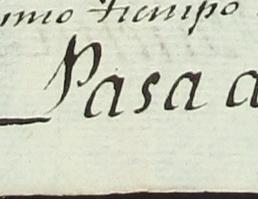 mo tiempo
Pasa a